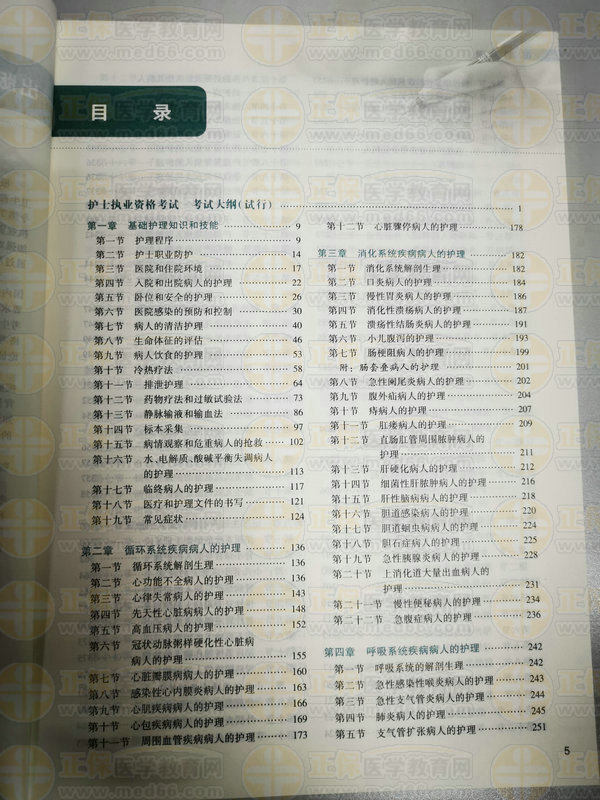 目 录
护士执业资格考试 考试大纲(试行) 1
第一章 基础护理知识和技能 9
第一节 护理程序 9
第二节 护士职业防护 14
第三节 医院和住院环境 17
第四节 入院和出院病人的护理 22
第五节 卧位和安全的护理 26
第六节 医院感染的预防和控制 30
第七节 病人的清洁护理 40
第八节 生命体征的评估 46
第九节 病人饮食的护理 53
第十节 冷热疗法 58
第十一节 排泄护理 64
第十二节 药物疗法和过敏试验法 73
第十三节 静脉输液和输血法 86
第十四节 标本采集 97
第十五节 病情观察和危重病人的抢救 102
第十六节 水、电解质、酸碱平衡失调病人
的护理 113
第十七节 临终病人的护理 117
第十八节 医疗和护理文件的书写 121
第十九节 常见症状 124
第二章 循环系统疾病病人的护理 136
第一节 循环系统解剖生理 136
第二节 心功能不全病人的护理 136
第三节 心律失常病人的护理 143
第四节 先天性心脏病病人的护理 148
第五节 高血压病人的护理 152
第六节 冠状动脉粥样硬化性心脏病
病人的护理 155
第七节 心脏瓣膜病病人的护理 160
第八节 感染性心内膜炎病人的护理 163
第九节 心肌疾病病人的护理 166
第十节 心包疾病病人的护理 169
第十一节 周围血管疾病病人的护理 173
第十二节 心脏骤停病人的护理 178
第三章 消化系统疾病病人的护理 182
第一节 消化系统解剖生理 182
第二节 口炎病人的护理 184
第三节 慢性胃炎病人的护理 186
第四节 消化性溃疡病人的护理 187
第五节 溃疡性结肠炎病人的护理 191
第六节 小儿腹泻的护理 193
第七节 肠梗阻病人的护理 199
附:肠套叠病人的护理 201
第八节 急性阑尾炎病人的护理 202
第九节 腹外疝病人的护理 204
第十节 痔病人的护理 207
第十一节 肛瘘病人的护理 209
第十二节 直肠肛管周围脓肿病人的
护理 211
第十三节 肝硬化病人的护理 212
第十四节 细菌性肝脓肿病人的护理 216
第十五节 肝性脑病病人的护理 218
第十六节 胆道感染病人的护理 220
第十七节 胆道蛔虫病病人的护理 224
第十八节 胆石症病人的护理 225
第十九节 急性胰腺炎病人的护理 228
第二十节 上消化道大量出血病人的
护理 231
第二十一节 慢性便秘病人的护理 234
第二十二节 急腹症病人的护理 236
第四章 呼吸系统疾病病人的护理 242
第一节 呼吸系统的解剖生理 242
第二节 急性感染性喉炎病人的护理 243
第三节 急性支气管炎病人的护理 244
第四节 肺炎病人的护理 245
第五节 支气管扩张病人的护理 251
5
正保医学教育网
www.med66.com